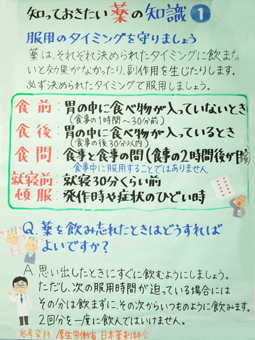 知っておきたい薬の知識1
服用のタイミングを守りましょう
薬は、それぞれ決められたタイミングに飲まな
いと効果がなかったり、副作用を生じたりします。
必ず決められたタイミングで服用しましょう。
食前:胃の中に食べ物が入っていないとき
(食事の1時間〜30分前)
食後:胃の中に食べ物が入っているとき
(食事の後30分以内)
食間:食事と食事の間(食事の2時間後が目安)
食事中に服用することではありません
就寝前:就寝30分くらい前
頓服:発作時や症状のひどい時
Q.薬を飲み忘れたときはどうすれば
よいですか?
A.思い出したときにすぐに飲むようにしましょう。
ただし、次の服用時間が迫っている場合には
その分は飲まずに、その次からいつものように飲みます。
2回分を一度に飲んではいけません。
参考資料:厚生労働省 日本薬剤師会